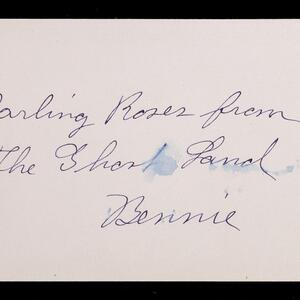 Darling Roses from
The Ghost Land
Bennie